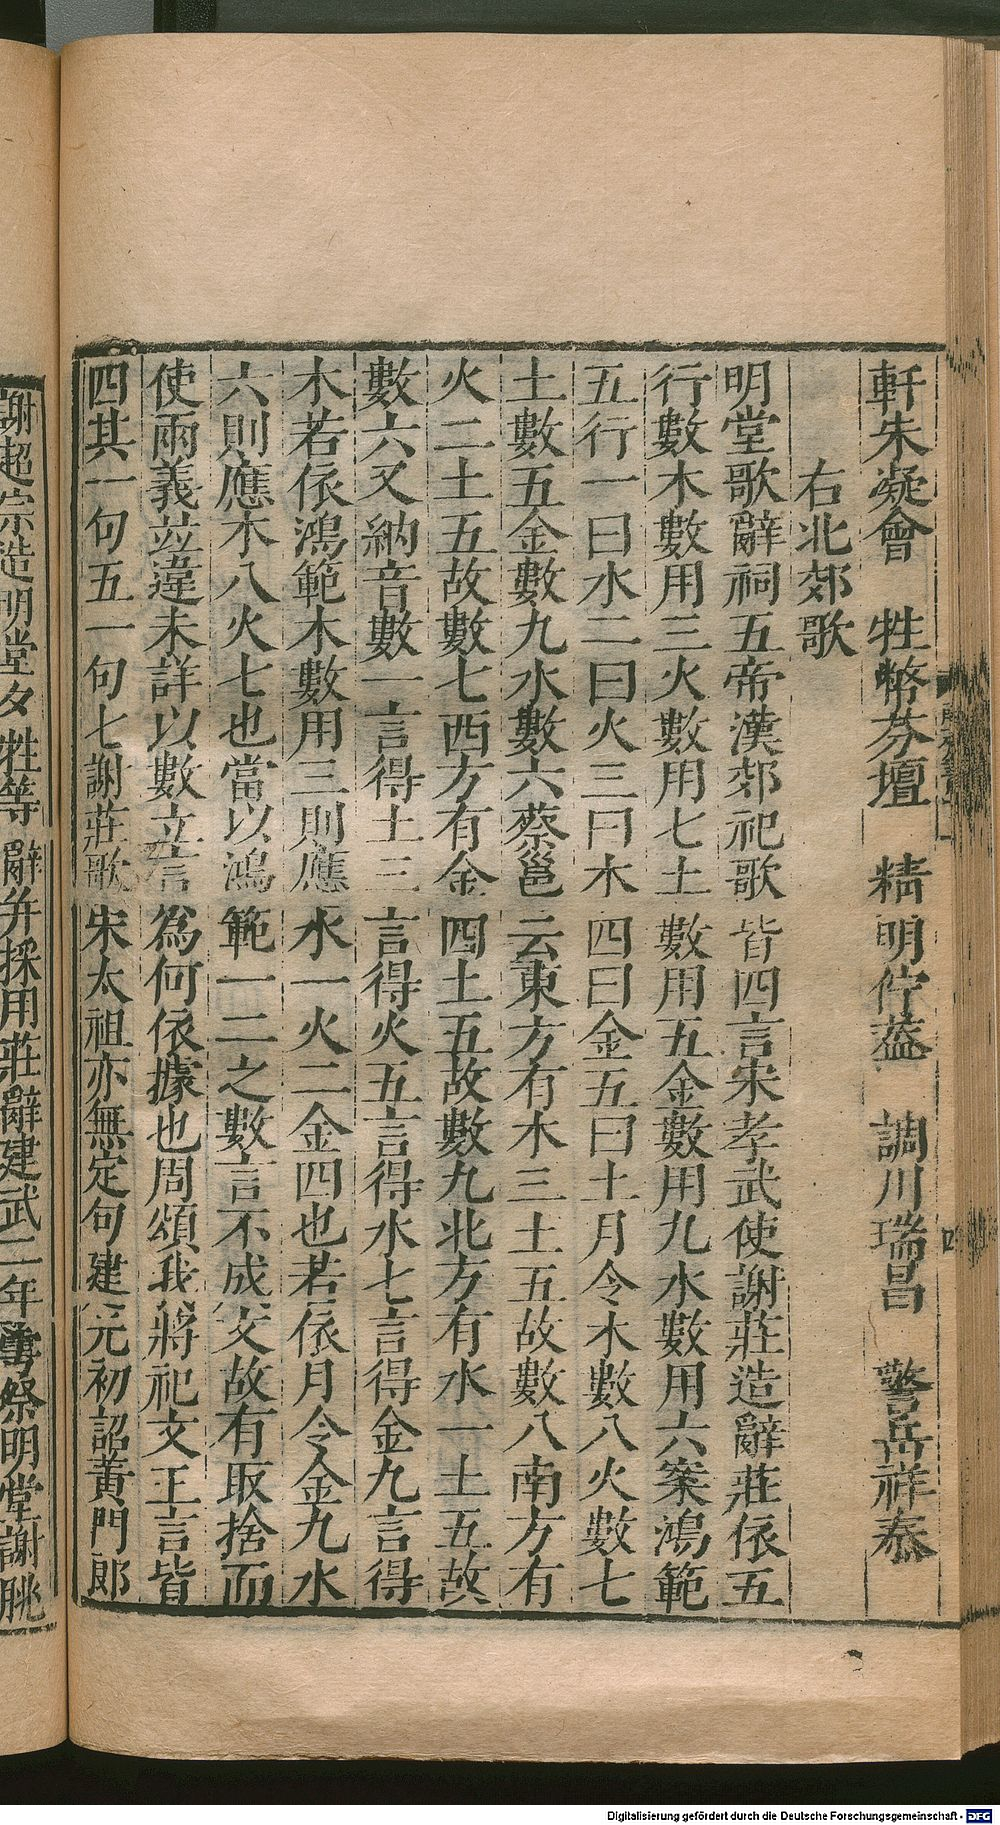 軒朱凝會　牲幣芬壇　精明佇葢　調川瑞昌　警岳祥泰
右北郊歌
明堂歌辭祠五帝漢郊祀歌皆四言宋孝武使謝莊造辭莊依五
行數木數用三火數用七土數用五金數用九水數用六案鴻範
五行一曰水二曰火三曰木四曰金五曰土月令木數八火數七
土數五金數九水數六蔡邕云東方有木三土五故數八南方有
火二土五故數七西方有金四土五故數九北方有水一土五故
數六又納音數一言得土三言得火五言得水七言得金九言得
木若依鴻範木數用三則應水一火二金四也若依月令金九水
六則應木八火七也當以鴻範一二之數言不成文故有取捨而
使兩義並違未詳以數立言為何依據也周頌我將祀文王言皆
四其一句五一句七謝莊歌宋太祖亦無定句建元初詔黃門郎
謝超宗造明堂夕牲等辭并採用莊辭建武二年雩祭明堂謝朓
Digitalisierung gefördert durch die Deutsche Forschungsgemeinschaft - DFG